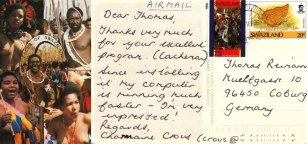 AIRMAIL
Dear Thomas,
Thanks very much
for your excellent
program. (Cacheman)
Since installing
it my computer
is running much
faster - I'm very
impressed!
Regards,
Charmaine Crous (crous@
SWAZILAND
SWAZILAND
20c
Thomas Reimann
10
96450 Coburg
Germany